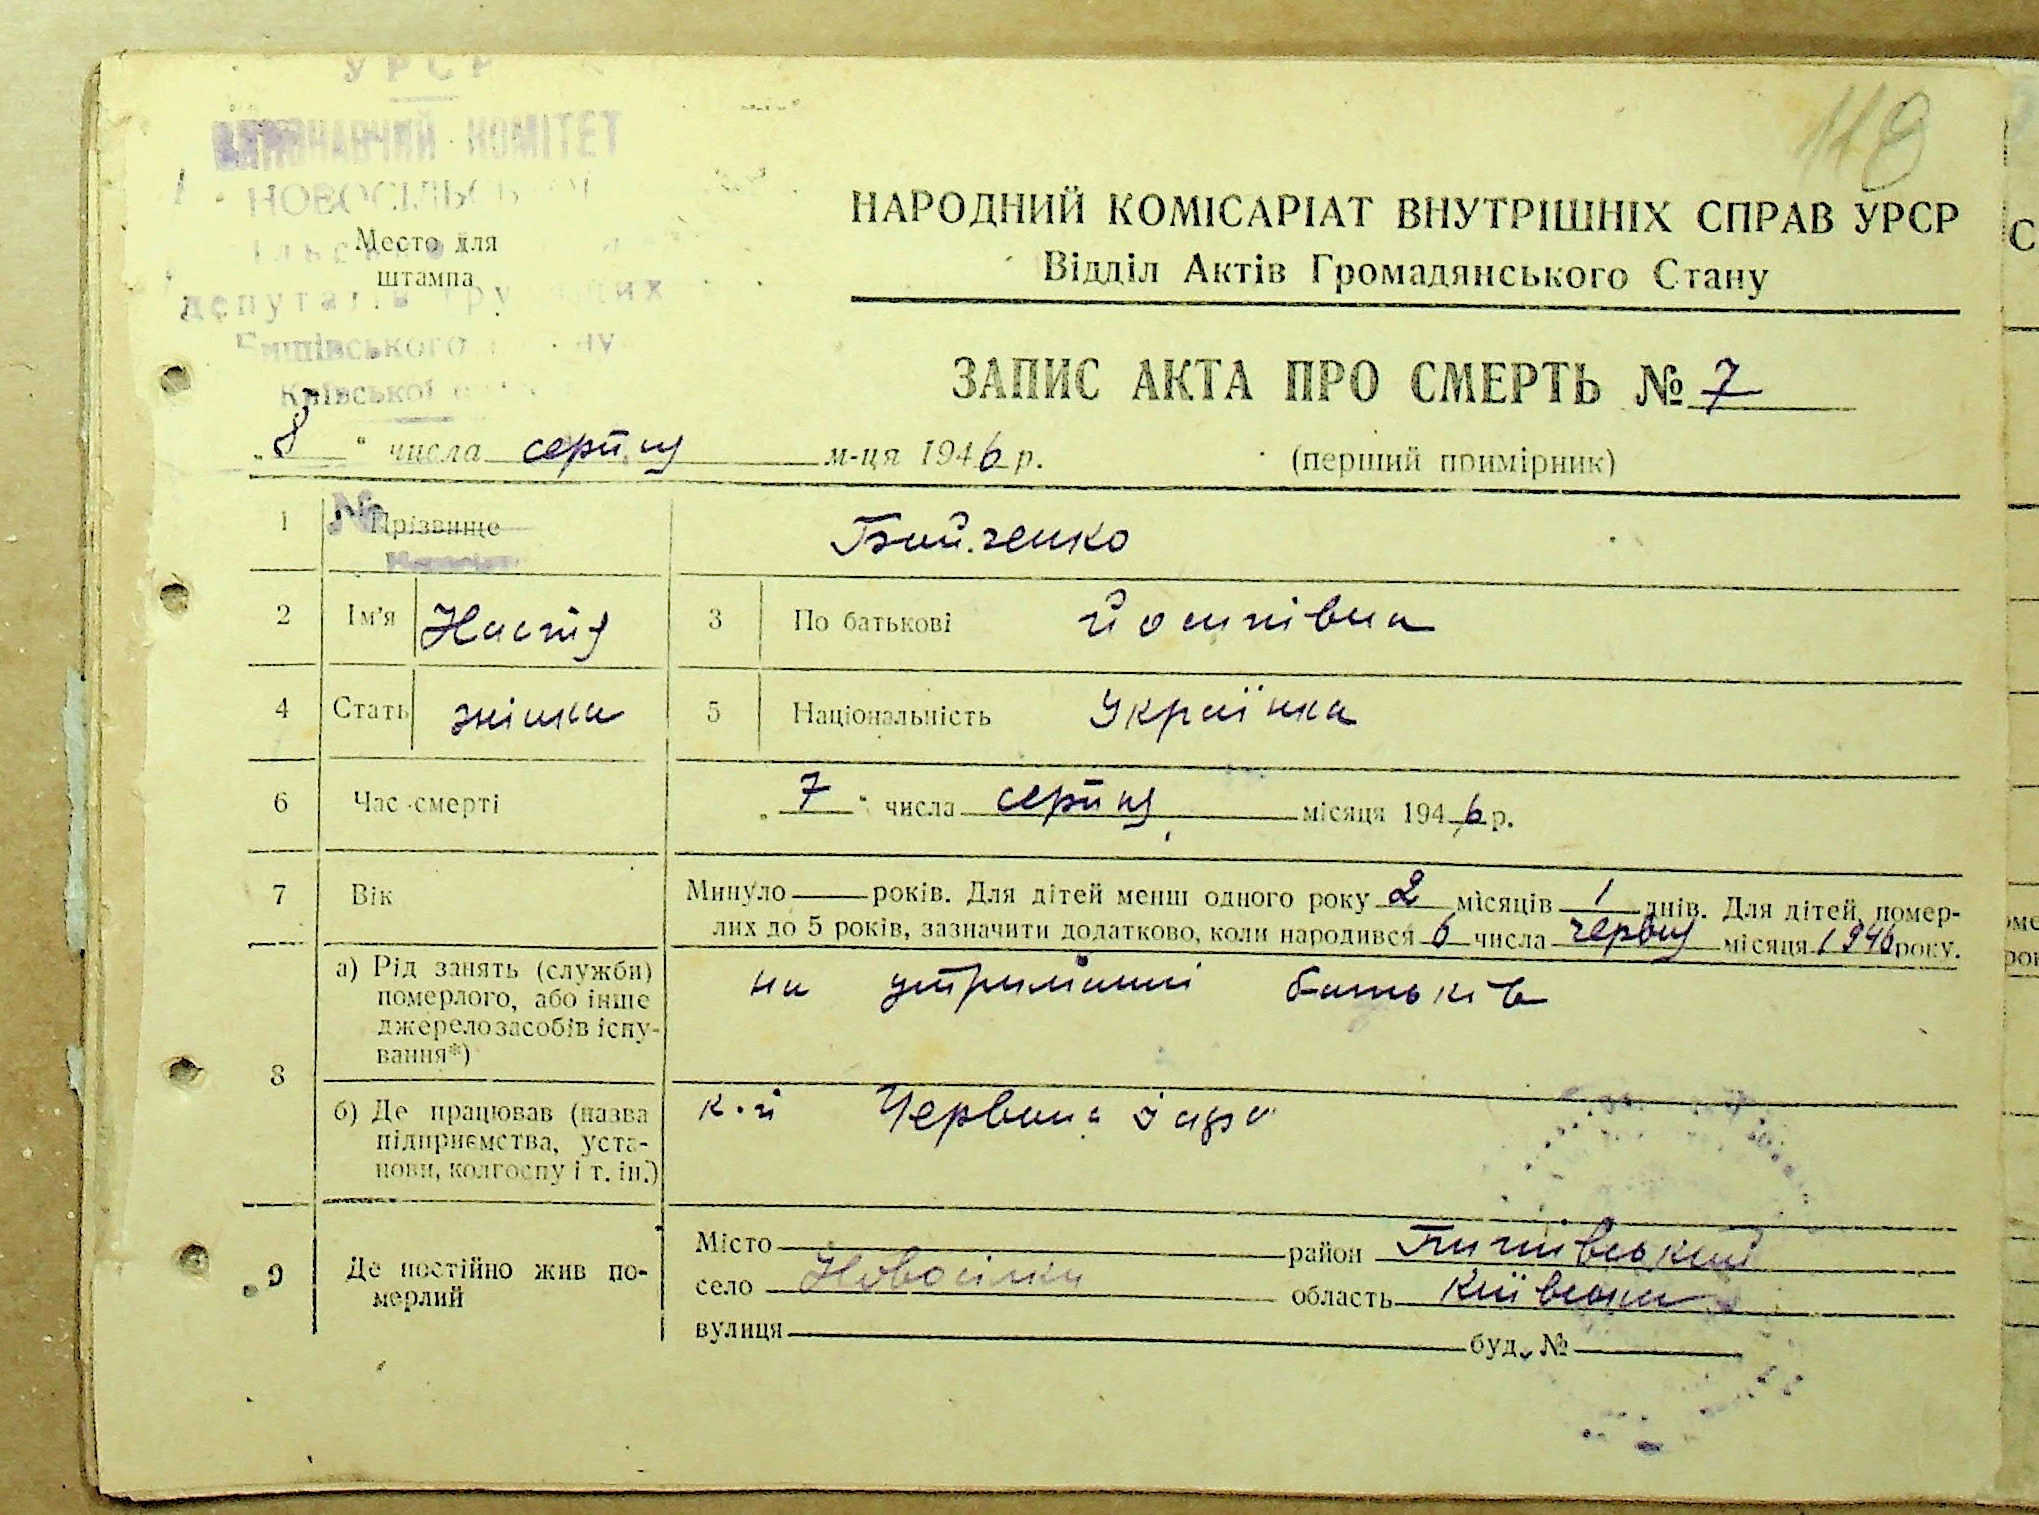 УРСР
ВИКОНАВЧИЙ КОМІТЕТ
118
НАРОДНИЙ КОМІСАРІАТ ВНУТРІШНІХ СПРАВ УРСР
Відділ Актів Громадянського Стану
Место для
штампа
депутатів
Київської
ЗАПИС АКТА ПРО СМЕРТЬ № 7
„8“ числа серпня м-ця 1946 р. (перший примірник)
1 Прізвище Бойченко
2 Ім'я Настя 3 По батькові Йосипівна
4 Стать жінка 5 Національність Українка
6 Час смерті „7“ числа серпня місяця 1946 р.
7 Вік Минуло — років. Для дітей менш одного року 2 місяців 1 днів. Для дітей, помер-
лих до 5 років, зазначити додатково, коли народився 6 числа червня місяця 1946 року.
8 а) Рід занять (служби)
померлого, або інше
джерело засобів існу-
вання*)
на утриманні батьків
б) Де працював (назва
підприємства, уста-
нови, колгоспу і т. ін.)
к-п Червона зоря
9 Де постійно жив по-
мерлий
Місто район
село Новосілки область Київська
вулиця буд. №